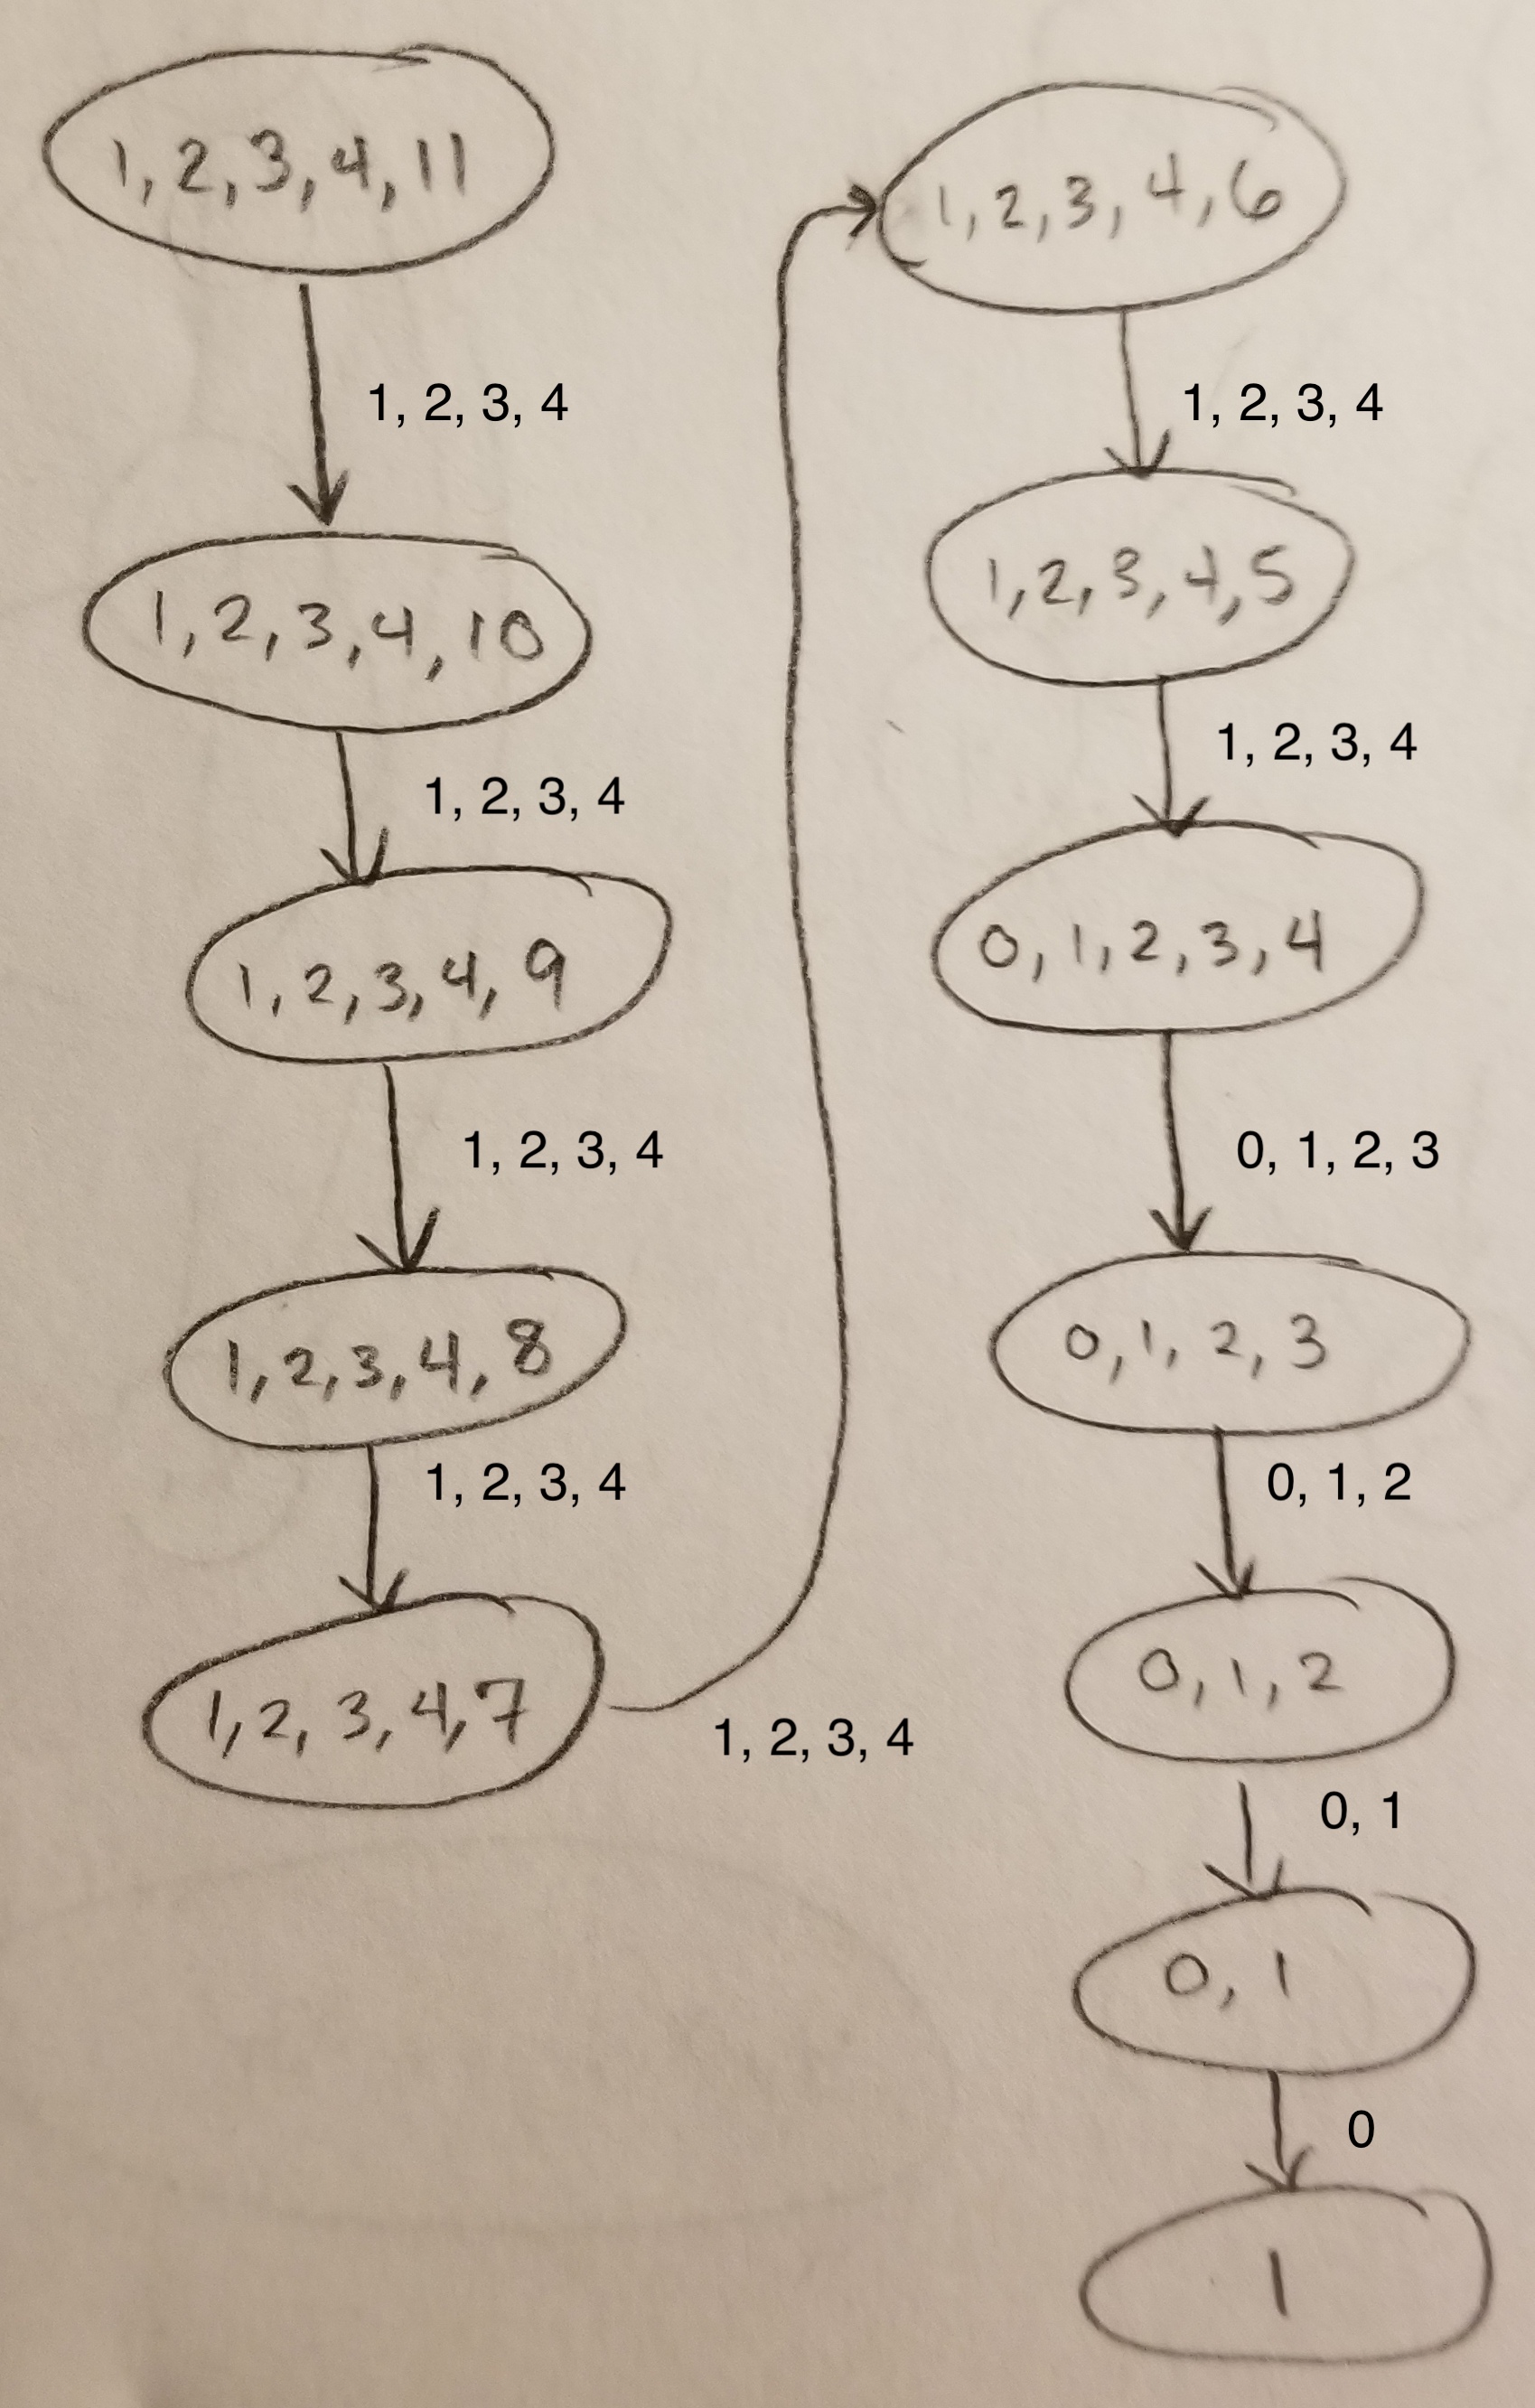 1, 2, 3, 4, 11
1, 2, 3, 4
1, 2, 3, 4, 10
1, 2, 3, 4
1, 2, 3, 4, 9
1, 2, 3, 4
1, 2, 3, 4, 8
1, 2, 3, 4
1, 2, 3, 4, 7
1, 2, 3, 4
1, 2, 3, 4, 6
1, 2, 3, 4
1, 2, 3, 4, 5
1, 2, 3, 4
0, 1, 2, 3, 4
0, 1, 2, 3
0, 1, 2, 3
0, 1, 2
0, 1, 2
0, 1
0, 1
0
1